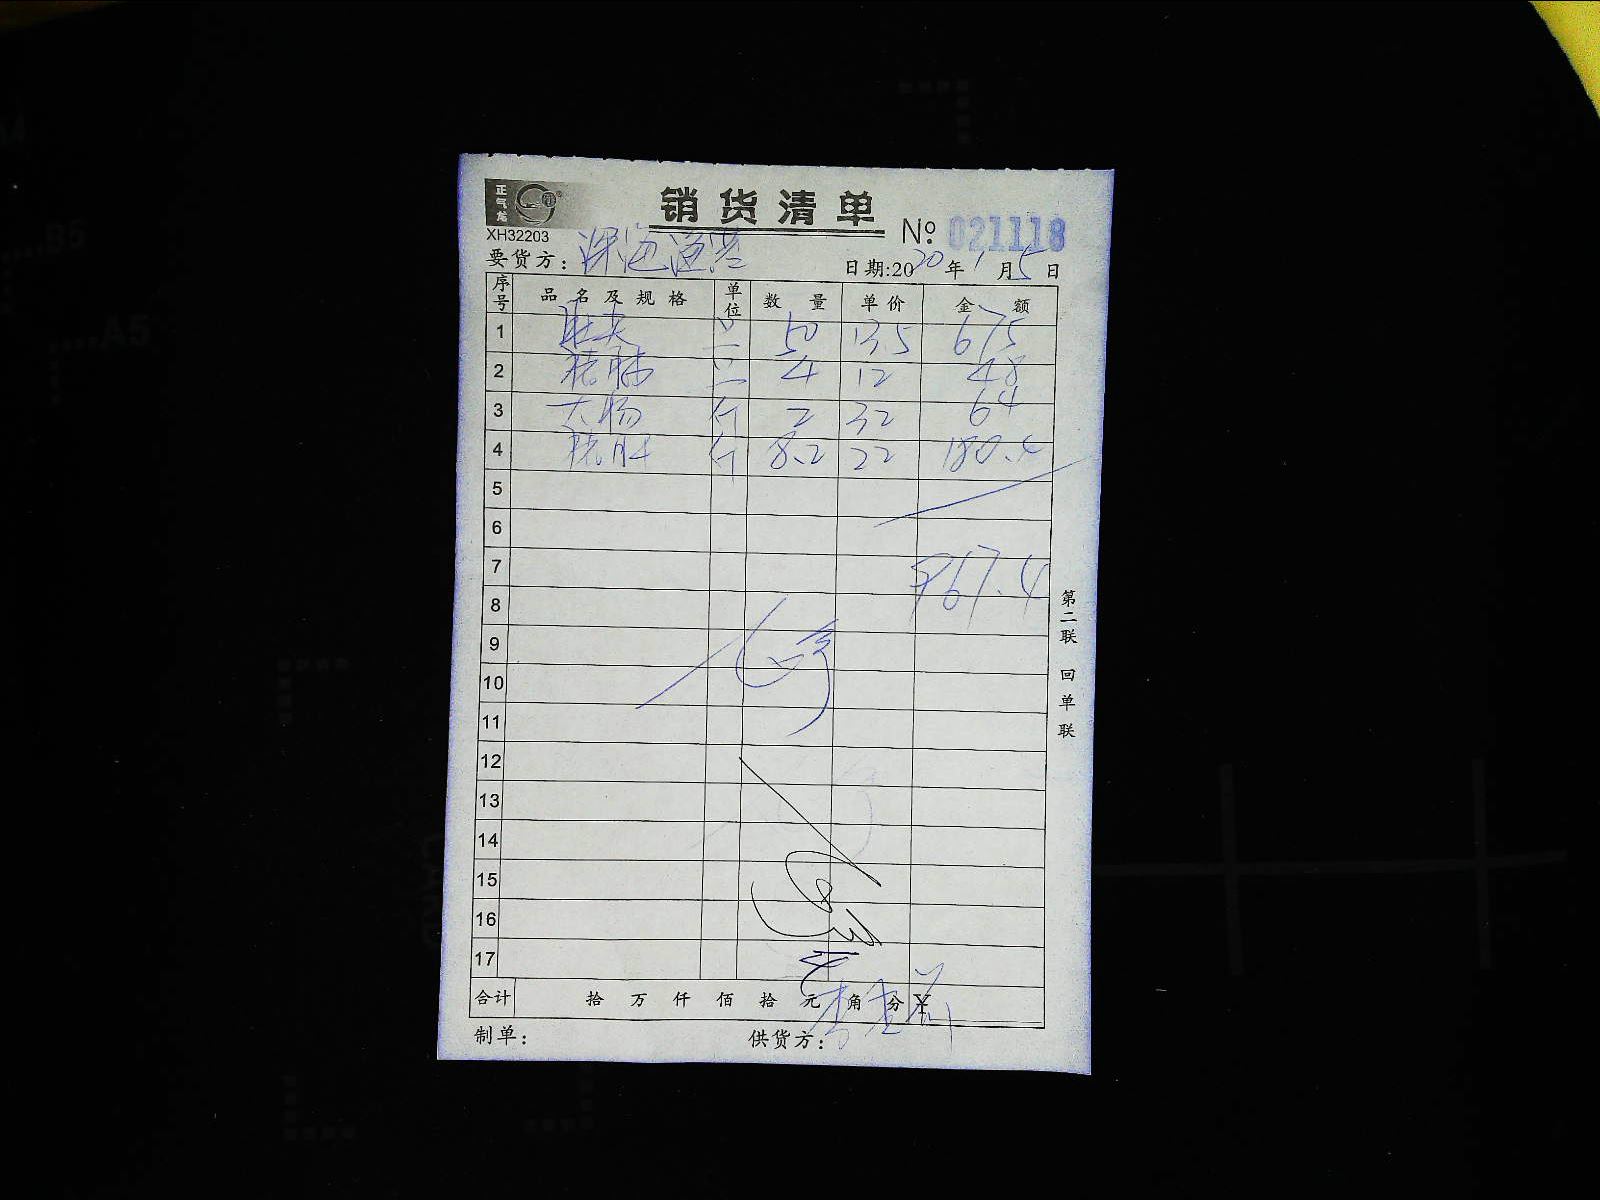 正气龙
销货清单
XH32203
№ 021118
要货方: 深海渔港
日期:2020年1月5日
序号 品名及规格 单位 数量 单价 金额
1 只 50 13.5 675
2 猪肺 只 4 12 48
3 大肠 斤 2 32 64
4 猪肚 斤 8.2 22 180.4
5
6
7 967.4
8
9
10
11
12
13
14
15
16
17
合计 拾万仟佰拾元角分¥
制单: 供货方:
第二联 回单联